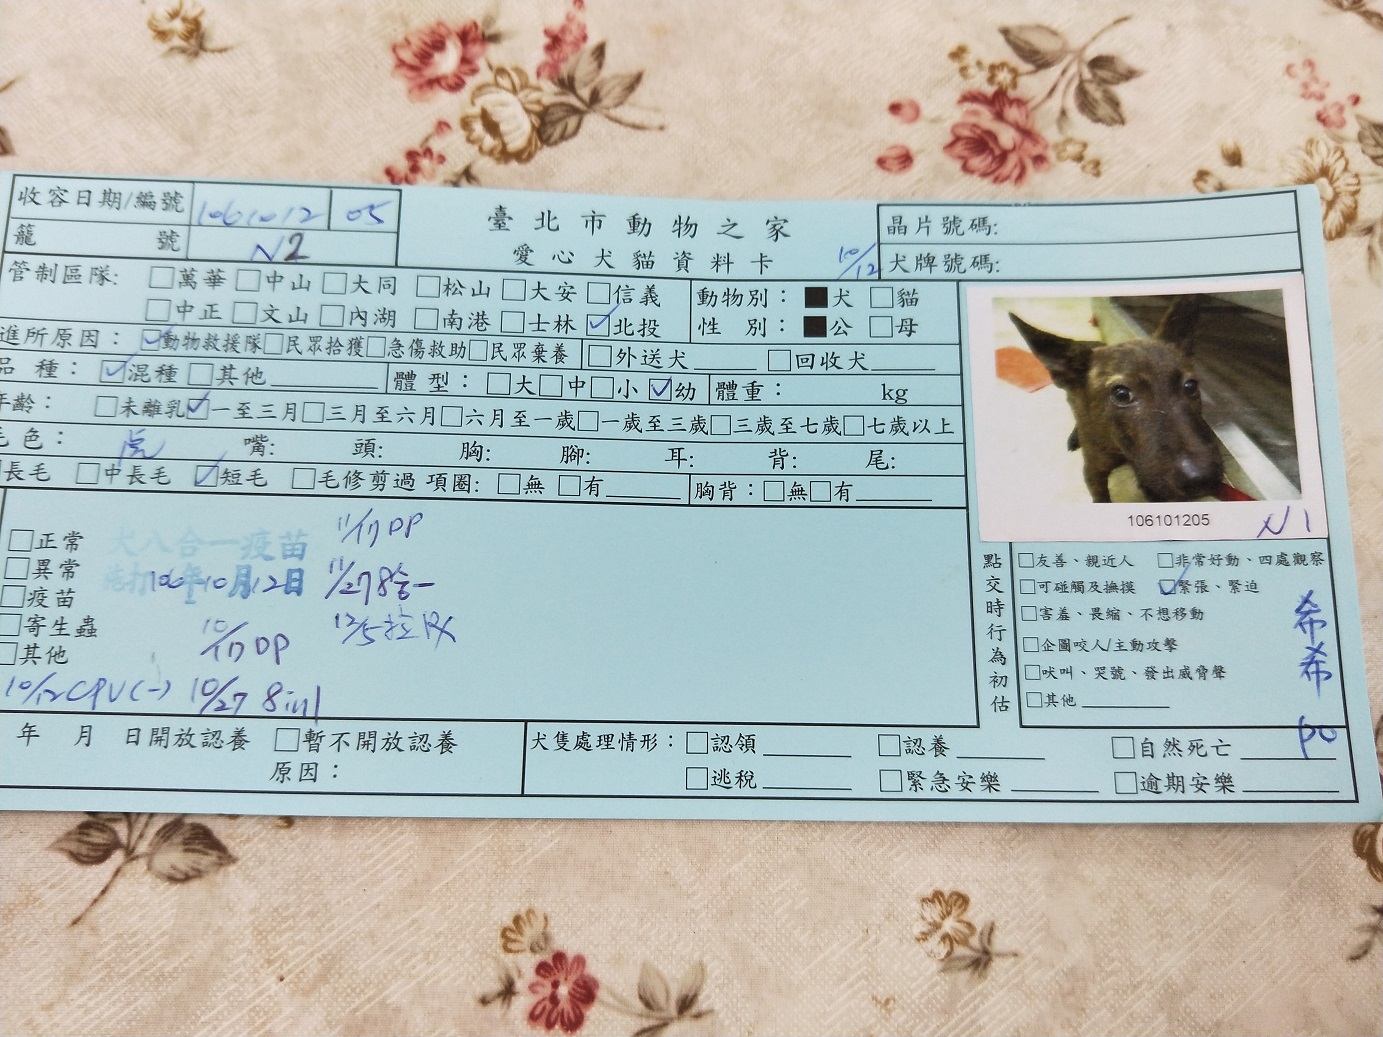 收容日期/編號 1061012 05
籠 號 N2
臺北市動物之家
愛心犬貓資料卡
10/12
晶片號碼:
犬牌號碼:
管制區隊: □萬華 □中山 □大同 □松山 □大安 □信義
□中正 □文山 □內湖 □南港 □士林 ☑北投
動物別: ■犬 □貓
性 別: ■公 □母
進所原因: ☑動物救援隊 □民眾拾獲 □急傷救助 □民眾棄養 □外送犬 □回收犬
品 種: ☑混種 □其他 體 型: □大 □中 □小 ☑幼 體重: kg
年齡: □未離乳 ☑一至三月 □三月至六月 □六月至一歲 □一歲至三歲 □三歲至七歲 □七歲以上
毛色: 虎 嘴: 頭: 胸: 腳: 耳: 背: 尾:
□長毛 □中長毛 ☑短毛 □毛修剪過 項圈: □無 □有 胸背: □無 □有
106101205
N1
□正常
□異常
□疫苗
□寄生蟲
□其他
犬八合一疫苗
106年10月12日
10/17 DP
10/12 CPV(-) 10/27 8in1
11/17 DP
11/27 8合一
12/5
點交時行為初估
□友善、親近人 □非常好動、四處觀察
□可碰觸及撫摸 ☑緊張、緊迫
□害羞、畏縮、不想移動
□企圖咬人/主動攻擊
□吠叫、哭號、發出威脅聲
□其他
希希
年 月 日開放認養 □暫不開放認養
原因:
犬隻處理情形: □認領 □認養 □自然死亡
□逃稅 □緊急安樂 □逾期安樂